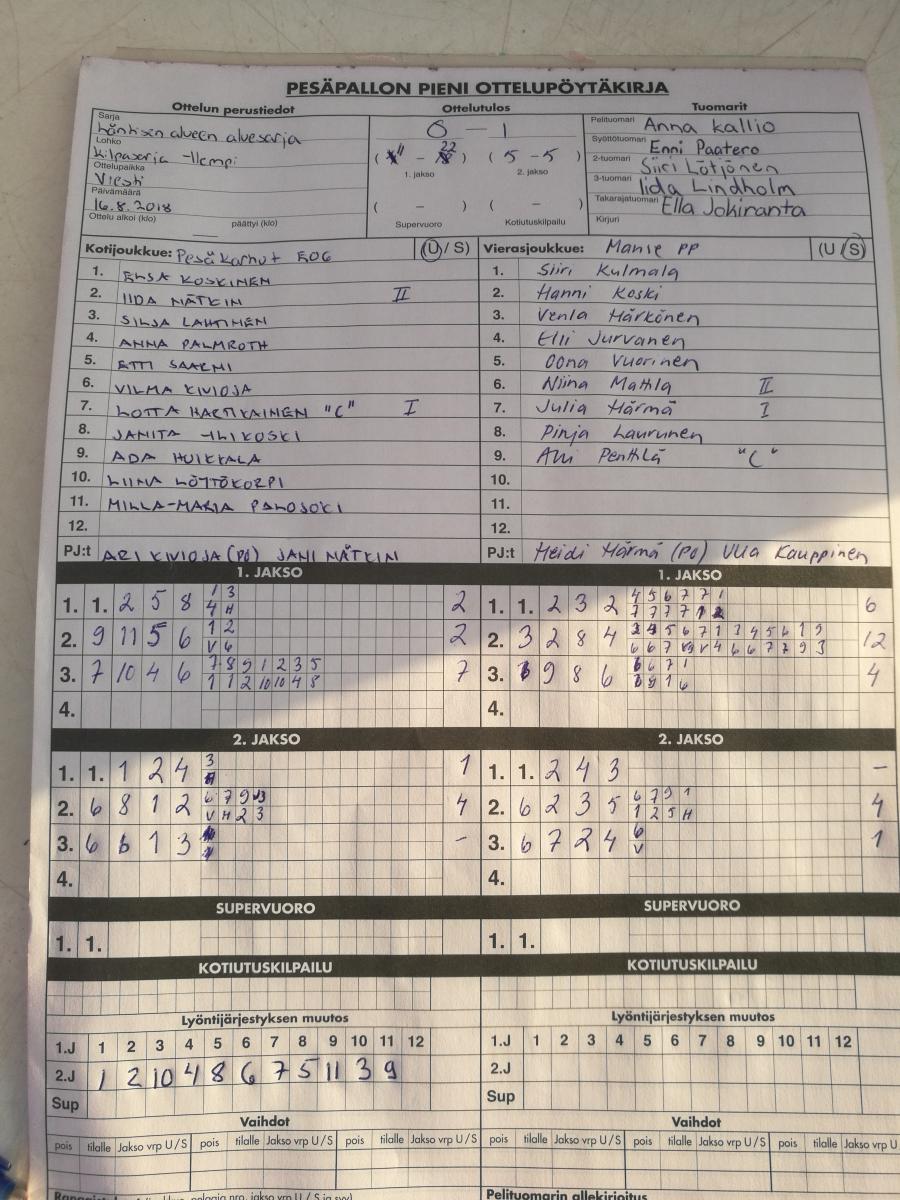 PESÄPALLON PIENI OTTELUPÖYTÄKIRJA
Ottelun perustiedot Ottelutulos Tuomarit
Sarja
Läntisen alueen aluesarja
Lohko
Kilpasarja
Ottelupaikka
Viesti
Päivämäärä
16.8.2018
Ottelu alkoi (klo) päättyi (klo)
0 – 1
( 11 – 22 ) ( 5 – 5 )
1. jakso 2. jakso
( – ) ( – )
Supervuoro Kotiutuskilpailu
Pelituomari Anna Kallio
Syöttötuomari Enni Paatero
2-tuomari Siiri Lötjönen
3-tuomari Iida Lindholm
Takarajatuomari Ella Jokiranta
Kirjuri
Kotijoukkue: Pesäkarhut (U / S)
1. ELSA KOSKINEN
2. IIDA NÄTKIN II
3. SILJA LAHTINEN
4. ANNA PALMROTH
5. ETTI
6. VILMA KIVIOJA
7. LOTTA HARTIKAINEN "C" I
8. JANITA YLIKOSKI
9. ADA HUIKKALA
10. LIINA LÖYTÖKORPI
11. MILLA-MARIA PALOJOKI
12.
PJ:t ARI KIVIOJA (PJ) JANI NÄTKIN
Vierasjoukkue: Manse PP (U / S)
1. Siiri Kulmala
2. Hanni Koski
3. Venla Härkönen
4. Elli Jurvanen
5. Oona Vuorinen
6. Niina Mattila II
7. Julia Härmä I
8. Pinja Laurunen
9. Penttilä "C"
10.
11.
12.
PJ:t Heidi Härmä (PJ) Ulla Kauppinen
1. JAKSO
1. 1. 2 5 8 1 3 2
4 H
2. 9 11 5 6 1 2 2
V 6
3. 7 10 4 6 7 8 9 1 2 3 5 7
1 1 2 10 10 4 8
4.
1. JAKSO
1. 1. 2 3 2 4 5 6 7 7 1 6
7 7 7 7 1 2
2. 3 2 8 4 12
3. 9 8 6 6 7 1 4
4.
2. JAKSO
1. 1. 1 2 4 3 1
2. 6 8 1 2 6 7 9 4
V H 2 3
3. 6 6 1 3 –
4.
2. JAKSO
1. 1. 2 4 3 –
2. 6 2 3 5 6 7 9 1 4
1 2 5 H
3. 6 7 2 4 6 1
V
4.
SUPERVUORO
1. 1.
SUPERVUORO
1. 1.
KOTIUTUSKILPAILU
KOTIUTUSKILPAILU
Lyöntijärjestyksen muutos
1.J 1 2 3 4 5 6 7 8 9 10 11 12
2.J 1 2 10 4 8 6 7 5 11 3 9
Sup
Lyöntijärjestyksen muutos
1.J 1 2 3 4 5 6 7 8 9 10 11 12
2.J
Sup
Vaihdot
pois tilalle Jakso vrp U / S pois tilalle Jakso vrp U / S pois tilalle Jakso vrp U / S
Vaihdot
pois tilalle Jakso vrp U / S pois tilalle Jakso vrp U / S pois tilalle Jakso vrp U
Pelituomarin allekirjoitus